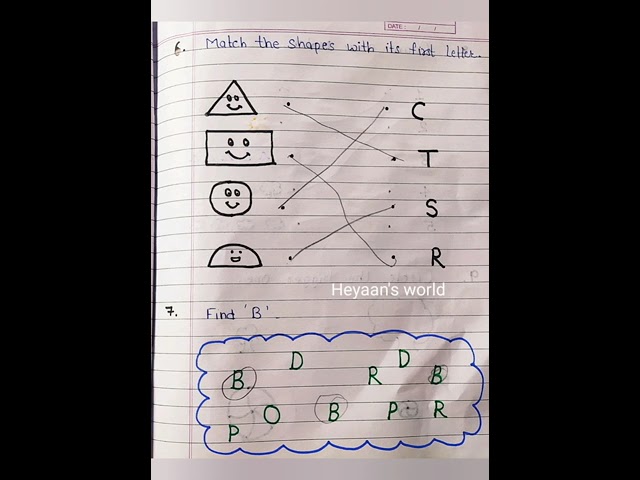 DATE: / /
6. Match the Shapes with its first letter.
C
T
S
R
Heyaan's world
7. Find 'B'.
D D
B. R B
O B P R
P